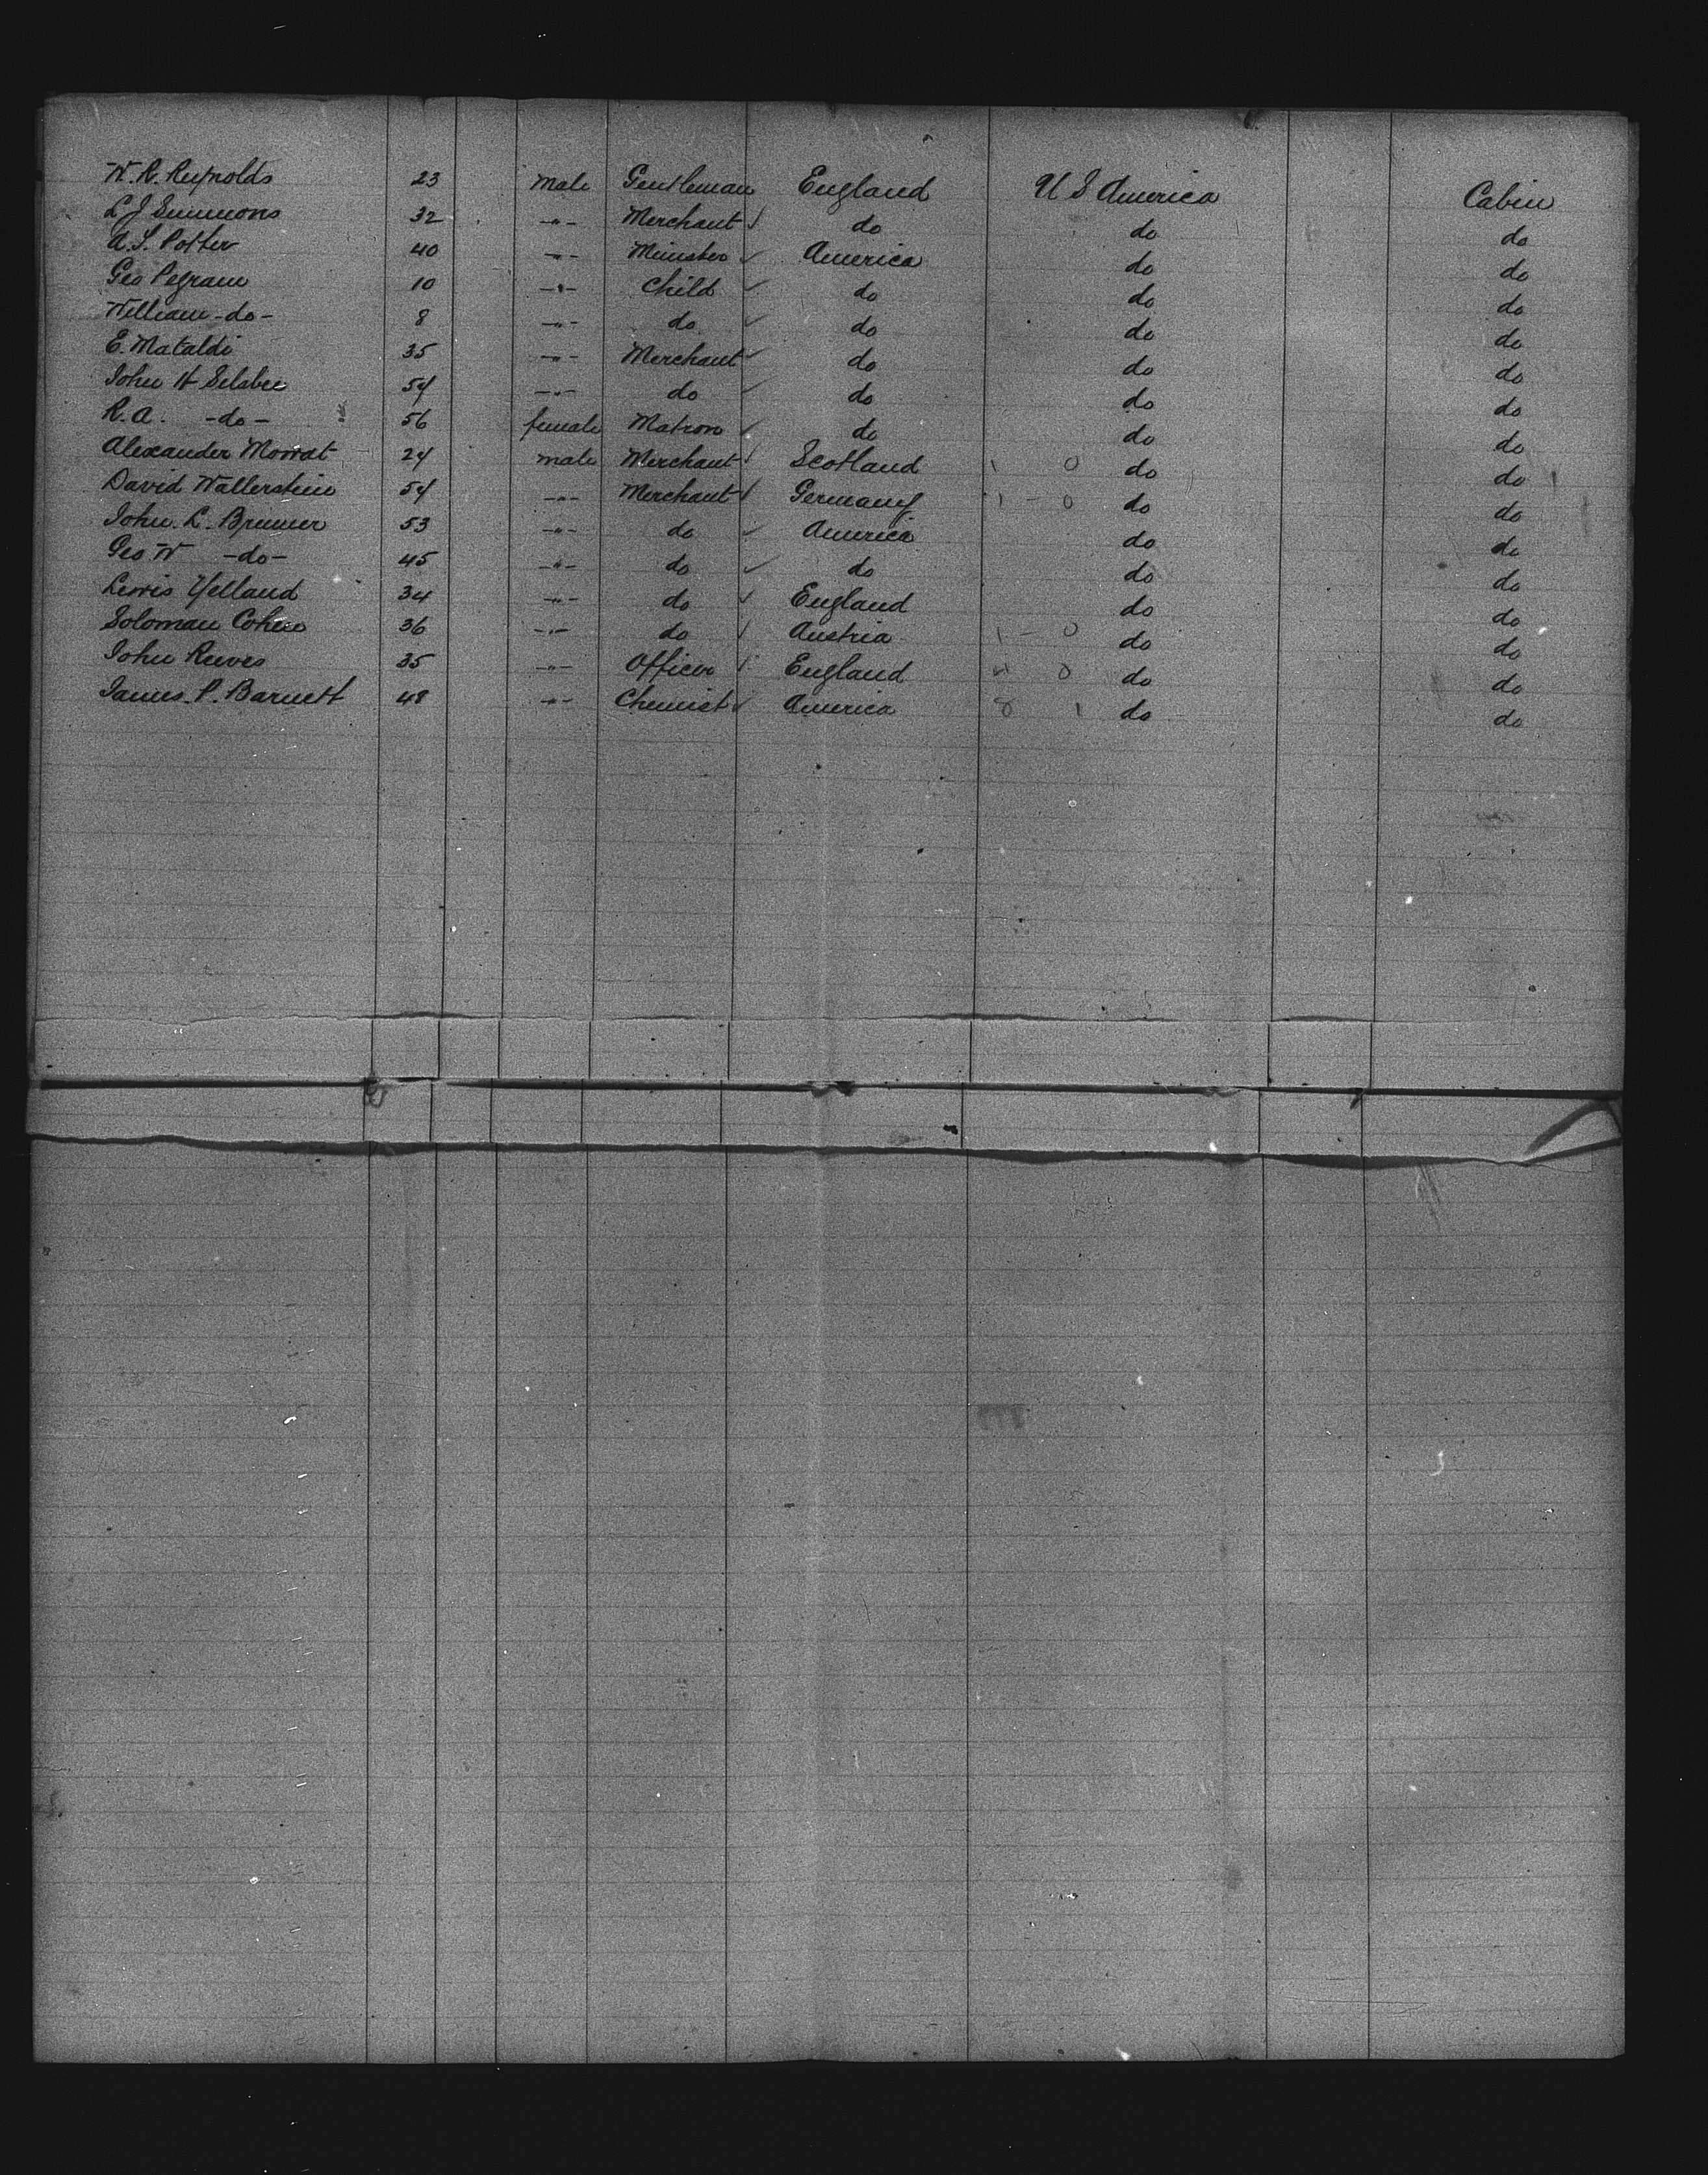 W. R. Reynolds 23 male Gentleman England U S America Cabin
L J Simmons 32 -"- Merchant do do do
A. S. Potter 40 -"- Minister America do do
Geo Pegram 10 -"- Child do do do
William -do- 8 -"- do do do do
E. Mataldi 35 -"- Merchant do do do
John H Silsbee 54 -"- do do do do
R. A. -do- 56 female Matron do do do
Alexander Mowat 24 male Merchant Scotland 1 0 do do
David Wallerstein 54 -"- Merchant Germany 1 - 0 do do
John. L. Brenner 53 -"- do America do do
Geo. W -do- 45 -"- do do do do
Lewis Yelland 34 -"- do England do do
Soloman Cohen 36 -"- do Austria 1 - 0 do do
John Reeves 35 -"- Officer England 4 0 do do
James. P. Barnett 48 -"- Chemist America 8 1 do do